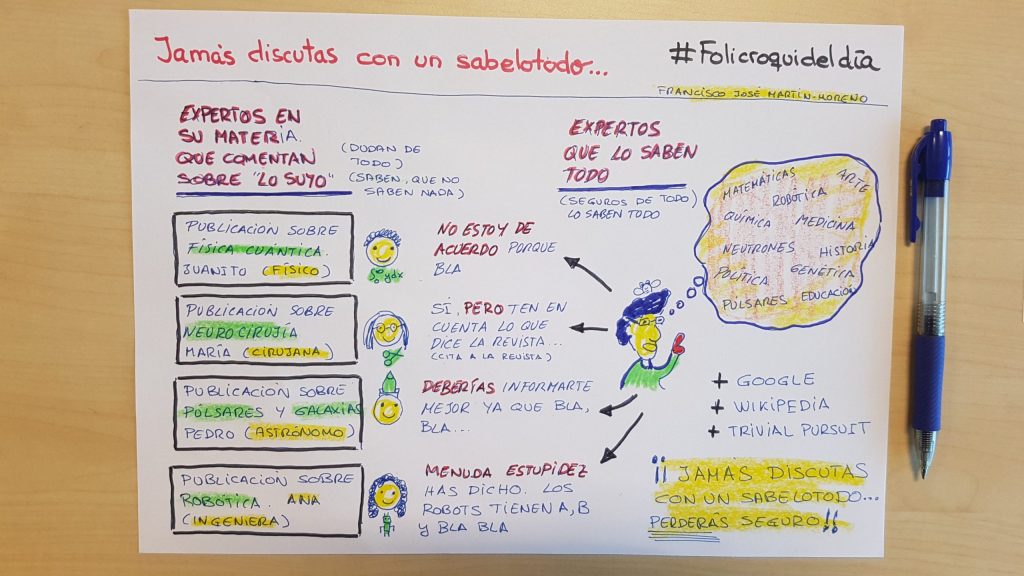 Jamás discutas con un sabelotodo...
#Folicroquideldía
FRANCISCO JOSÉ MARTÍN-MORENO
EXPERTOS EN
SU MATERIA.
QUE COMENTAN
SOBRE "LO SUYO"
(DUDAN DE
TODO)
(SABEN, QUE NO
SABEN NADA)
PUBLICACIÓN SOBRE
FÍSICA CUÁNTICA.
JUANITO (FÍSICO)
PUBLICACIÓN SOBRE
NEUROCIRUJÍA
MARÍA (CIRUJANA)
PUBLICACIÓN SOBRE
PÚLSARES Y GALAXIAS
PEDRO (ASTRÓNOMO)
PUBLICACIÓN SOBRE
ROBÓTICA. ANA
(INGENIERA)
EXPERTOS
QUE LO SABEN
TODO
(SEGUROS DE TODO)
LO SABEN TODO
NO ESTOY DE
ACUERDO PORQUE
BLA
SI, PERO TEN EN
CUENTA LO QUE
DICE LA REVISTA...
(CITA A LA REVISTA)
DEBERÍAS INFORMARTE
MEJOR YA QUE BLA,
BLA...
MENUDA ESTUPIDEZ
HAS DICHO. LOS
ROBOTS TIENEN A, B
Y BLA BLA
MATEMÁTICAS
ARTE
ROBÓTICA
QUÍMICA
MEDICINA
NEUTRONES
HISTORIA
POLÍTICA
GENÉTICA
PÚLSARES
EDUCACIÓN
+ GOOGLE
+ WIKIPEDIA
+ TRIVIAL PURSUIT
¡¡JAMÁS DISCUTAS
CON UN SABELOTODO...
PERDERÁS SEGURO!!